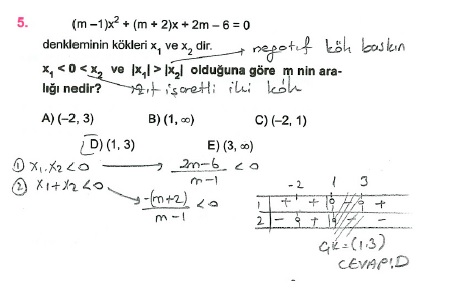 5. (m –1)x² + (m + 2)x + 2m – 6 = 0
denkleminin kökleri x₁ ve x₂ dir. → negatif kök baskın
x₁ < 0 < x₂ ve |x₁| > |x₂| olduğuna göre m nin ara-
lığı nedir? → zıt işaretli iki kök
A) (–2, 3) B) (1, ∞) C) (–2, 1)
D) (1, 3) E) (3, ∞)
① x₁.x₂ < 0 → 2m-6/m-1 < 0
② x₁+x₂ < 0 → -(m+2)/m-1 < 0
-2 1 3
1 + + - +
2 - + - -
ÇK=(1,3)
CEVAP:D